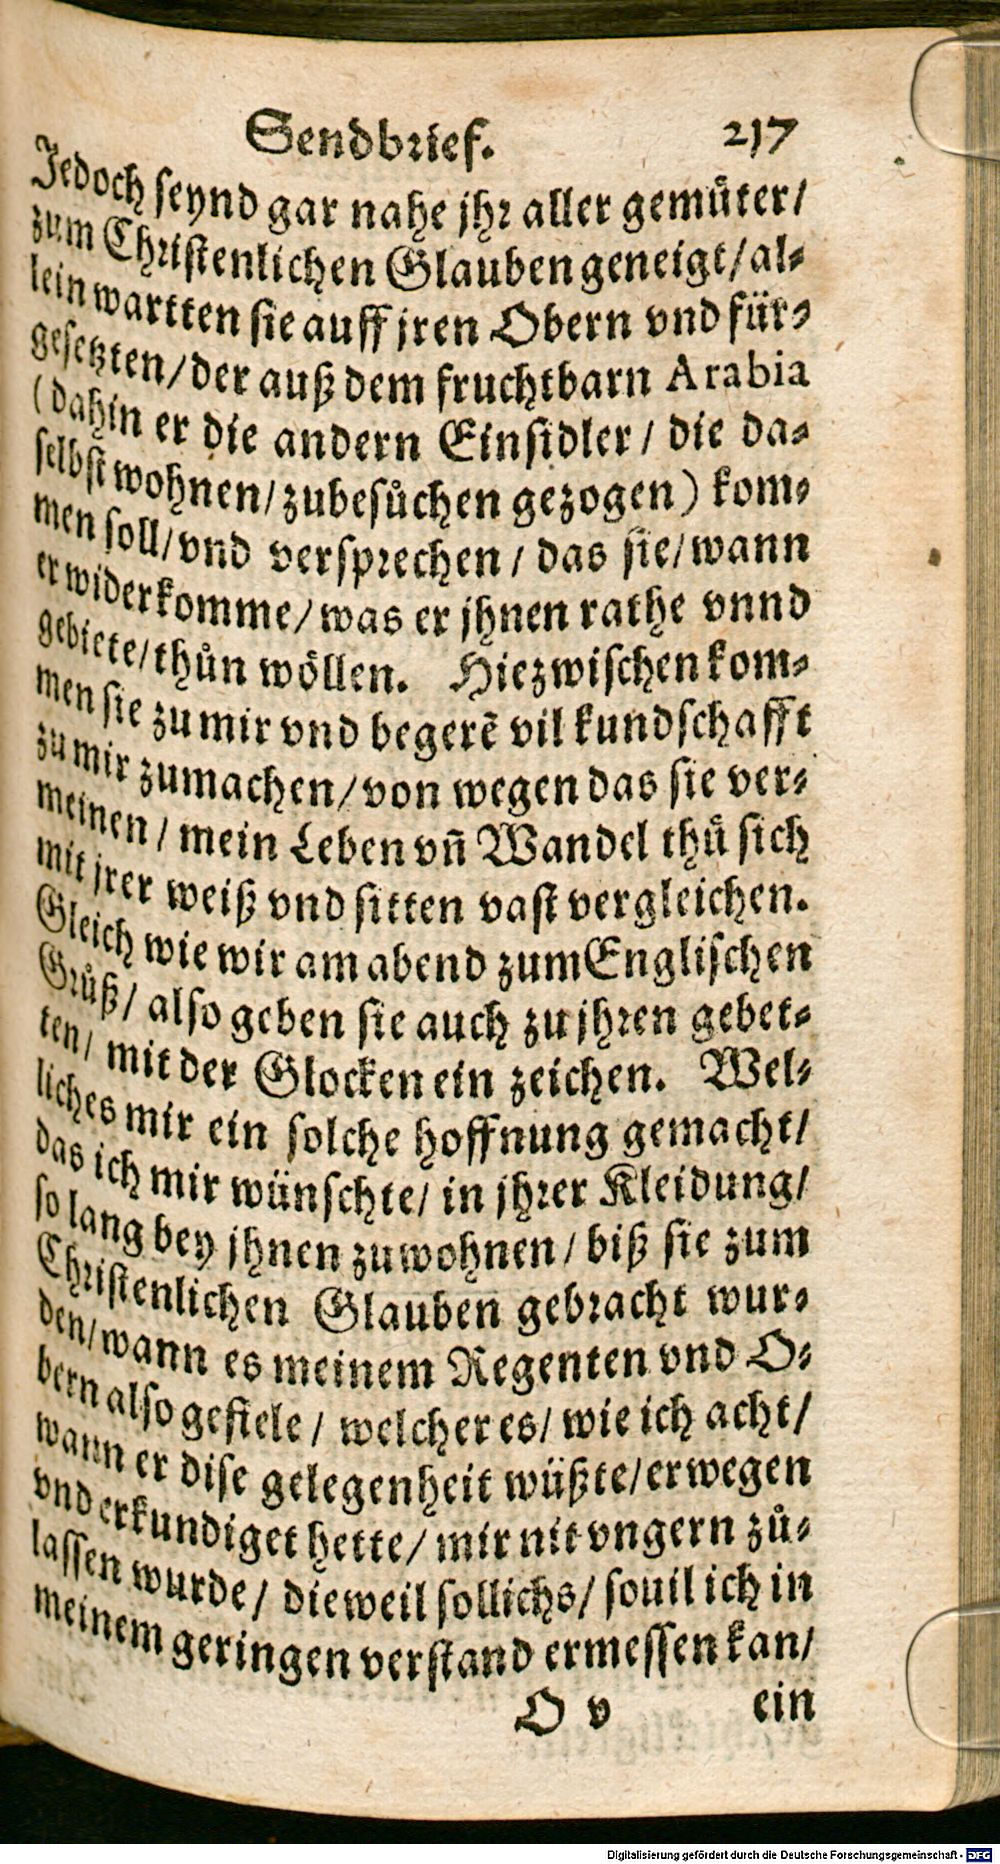 Sendbrief. 217
Jedoch seynd gar nahe jhr aller gemuͤter/
zum Christenlichen Glauben geneigt/al-
lein wartten sie auff jren Obern vnd für-
gesetzten/der auß dem fruchtbarn Arabia
(dahin er die andern Einsidler/ die da-
selbst wohnen/zubesuͦchen gezogen) kom-
men soll/vnd versprechen/ das sie/wann
er widerkomme/was er jhnen rathe vnnd
gebiete/thuͦn woͤllen. Hiezwischen kom-
men sie zu mir vnd begerẽ vil kundschafft
zu mir zumachen/von wegen das sie ver-
meinen/ mein Leben vñ Wandel thuͦ sich
mit jrer weiß vnd sitten vast vergleichen.
Gleich wie wir am abend zum Englischen
Gruͦß/ also geben sie auch zu jhren gebet-
ten/ mit der Glocken ein zeichen. Wel-
liches mir ein solche hoffnung gemacht/
das ich mir wünschte/ in jhrer Kleidung/
so lang bey jhnen zuwohnen/ biß sie zum
Christenlichen Glauben gebracht wur-
den/wann es meinem Regenten vnd O-
bern also gefiele/ welcher es/ wie ich acht/
wann er dise gelegenheit wüßte/erwegen
vnd erkundiget hette/ mir nit vngern zuͦ-
lassen wurde/ dieweil sollichs/ souil ich in
meinem geringen verstand ermessen kan/
O v ein
Digitalisierung gefördert durch die Deutsche Forschungsgemeinschaft - DFG